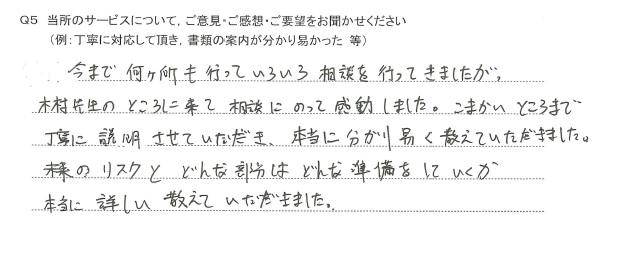 Q5 当所のサービスについて，ご意見・ご感想・ご要望をお聞かせください
（例：丁寧に対応して頂き，書類の案内が分かり易かった 等）
今まで何ヶ所も行っていろいろ相談を行ってきましたが、
木村先生のところに来て相談にのって感動しました。こまかいところまで
丁寧に説明させていただき、本当に分かり易く教えていただきました。
未来のリスクとどんな部分はどんな準備をしていくか
本当に詳しい教えていただきました。